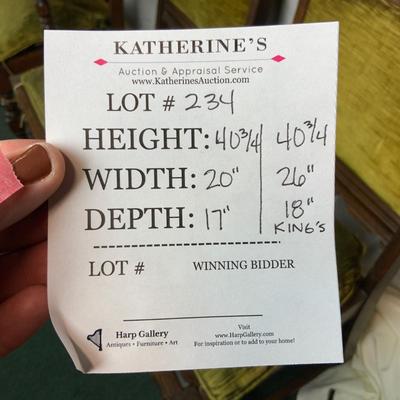 KATHERINE'S
Auction & Appraisal Service
www.KatherinesAuction.com
LOT # 234
HEIGHT: 40 3/4 | 40 3/4
WIDTH: 20" | 26"
DEPTH: 17" | 18"
KING'S
LOT # WINNING BIDDER
Harp Gallery
Antiques • Furniture • Art
Visit
www.HarpGallery.com
For inspiration or to add to your home!